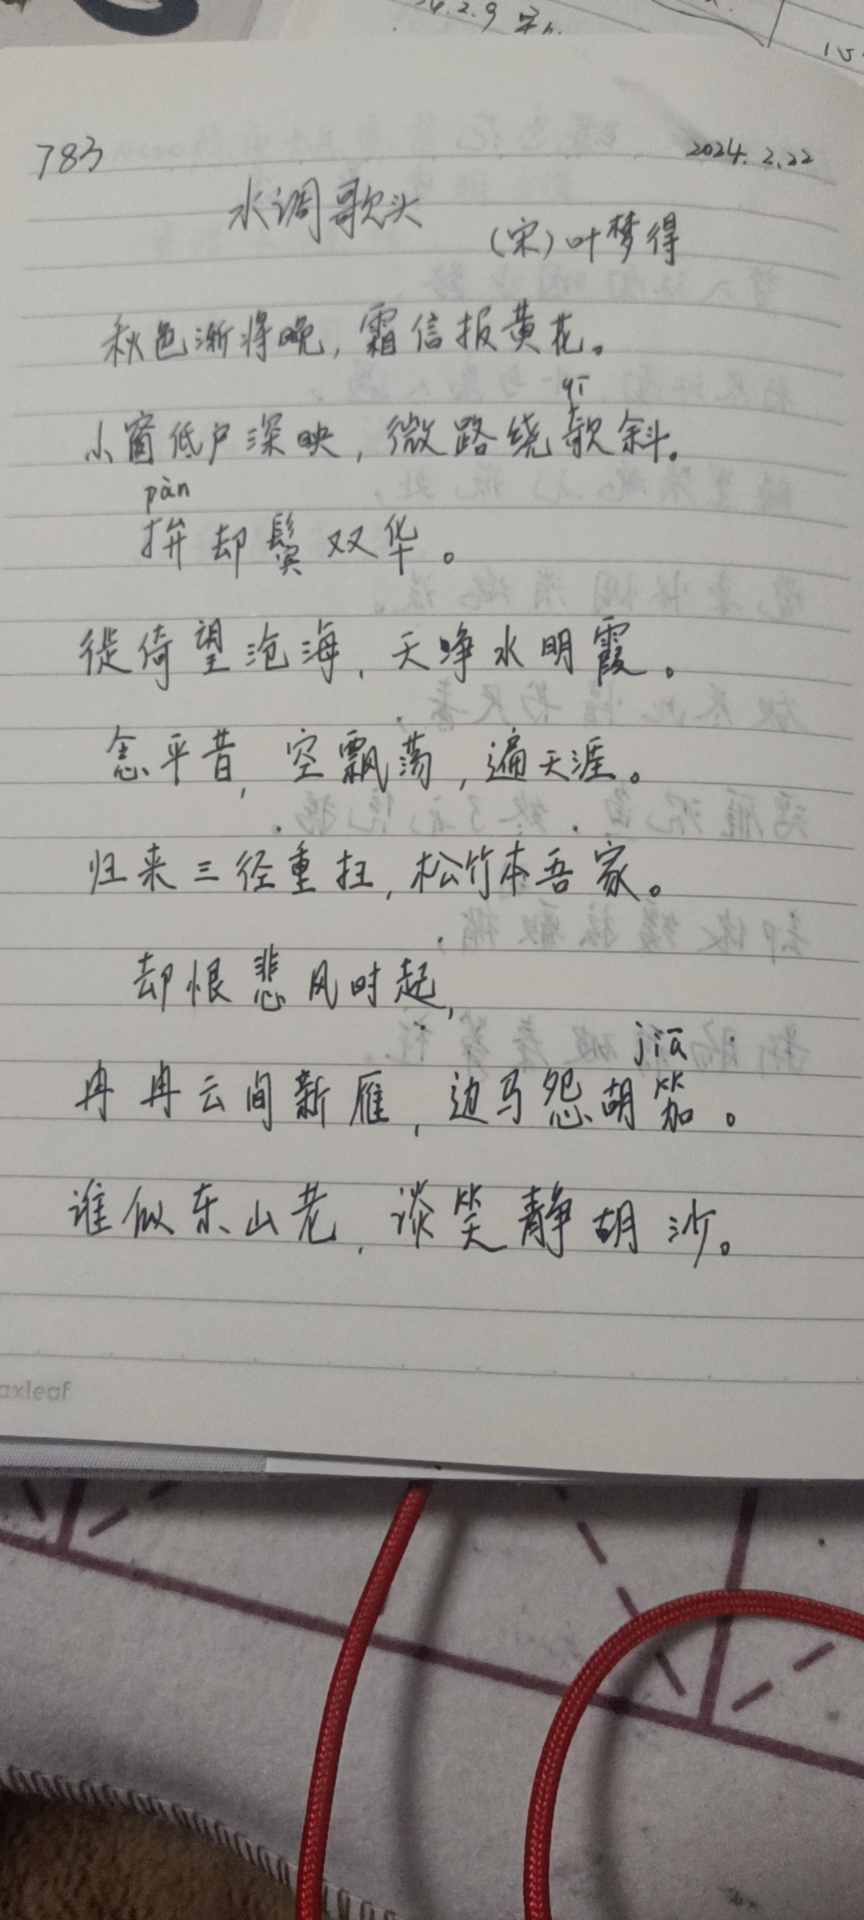 24.2.9
783
2024.2.22
水调歌头
(宋)叶梦得
秋色渐将晚,霜信报黄花。
qī
小窗低户深映,微路绕欹斜。
pàn
拚却鬓双华。
徙倚望沧海,天净水明霞。
念平昔,空飘荡,遍天涯。
归来三径重扫,松竹本吾家。
却恨悲风时起,
jiā
冉冉云间新雁,边马怨胡笳。
谁似东山老,谈笑静胡沙。
axleaf